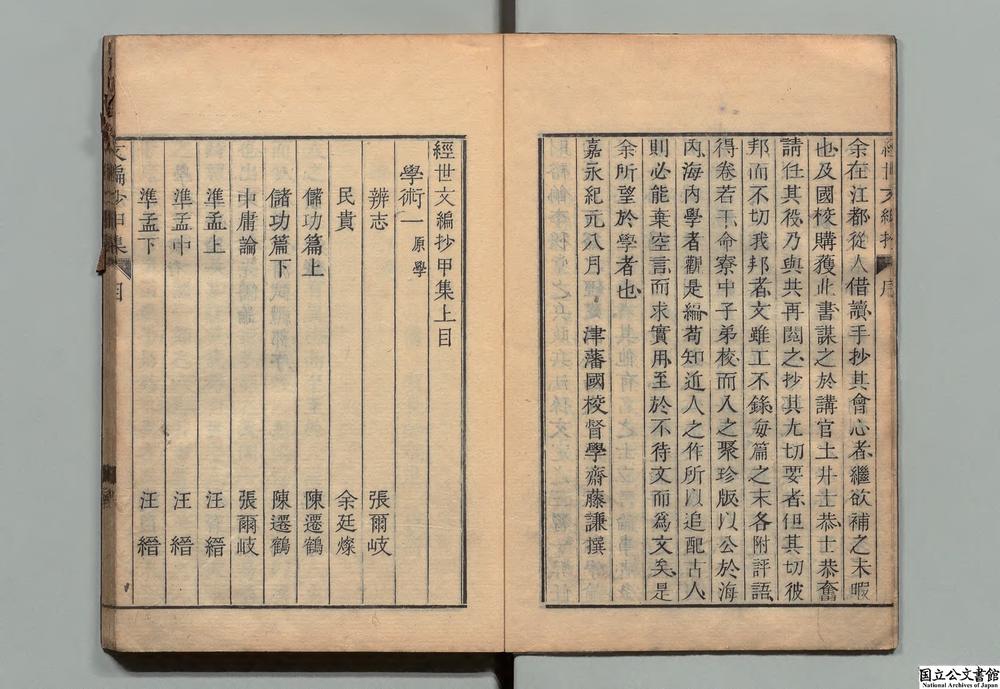 余在江都從人借讀手抄其會心者繼欲補之未暇
也及國校購獲此書謀之於講官土井士恭士恭奮
請任其役乃與共再閱之抄其尤切要者但其切彼
邦而不切我邦者文雖工不錄每篇之末各附評語
得卷若干命寮中子弟校而入之聚珍版以公於海
內海內學者觀是編苟知近人之作所以追配古人
則必能棄空言而求實用至於不待文而爲文矣是
余所望於學者也
嘉永紀元八月 津藩國校督學齋藤謙撰
經世文編抄甲集上目
學術一 原學
辨志 張爾岐
民貴 余廷燦
儲功篇上 陳遷鶴
儲功篇下 陳遷鶴
中庸論 張爾岐
準孟上 汪縉
準孟中 汪縉
準孟下 汪縉
文編抄甲集 目
国立公文書館
National Archives of Japan